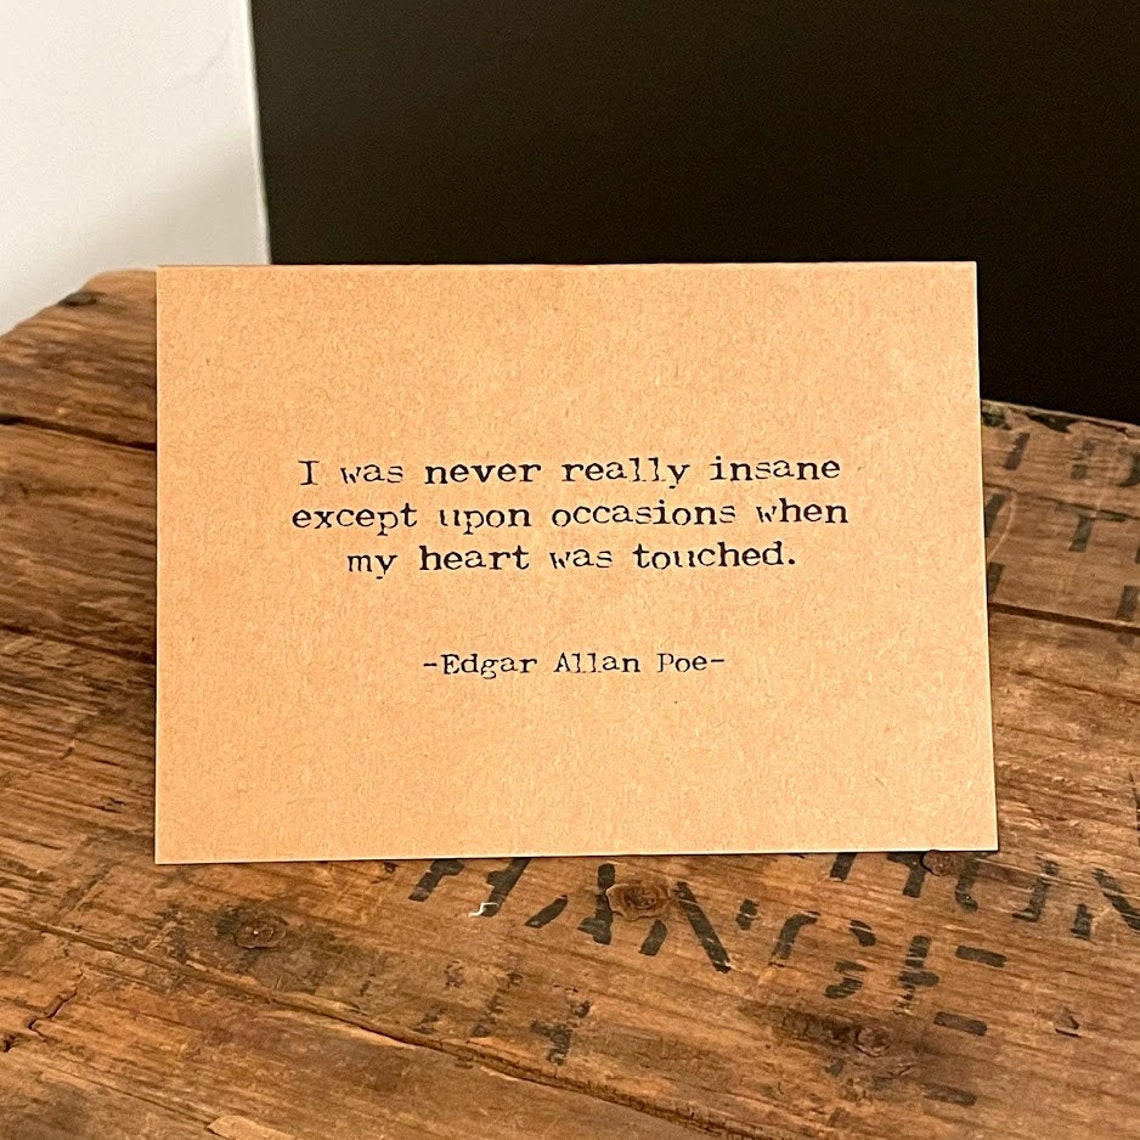 I was never really insane
except upon occasions when
my heart was touched.
-Edgar Allan Poe-